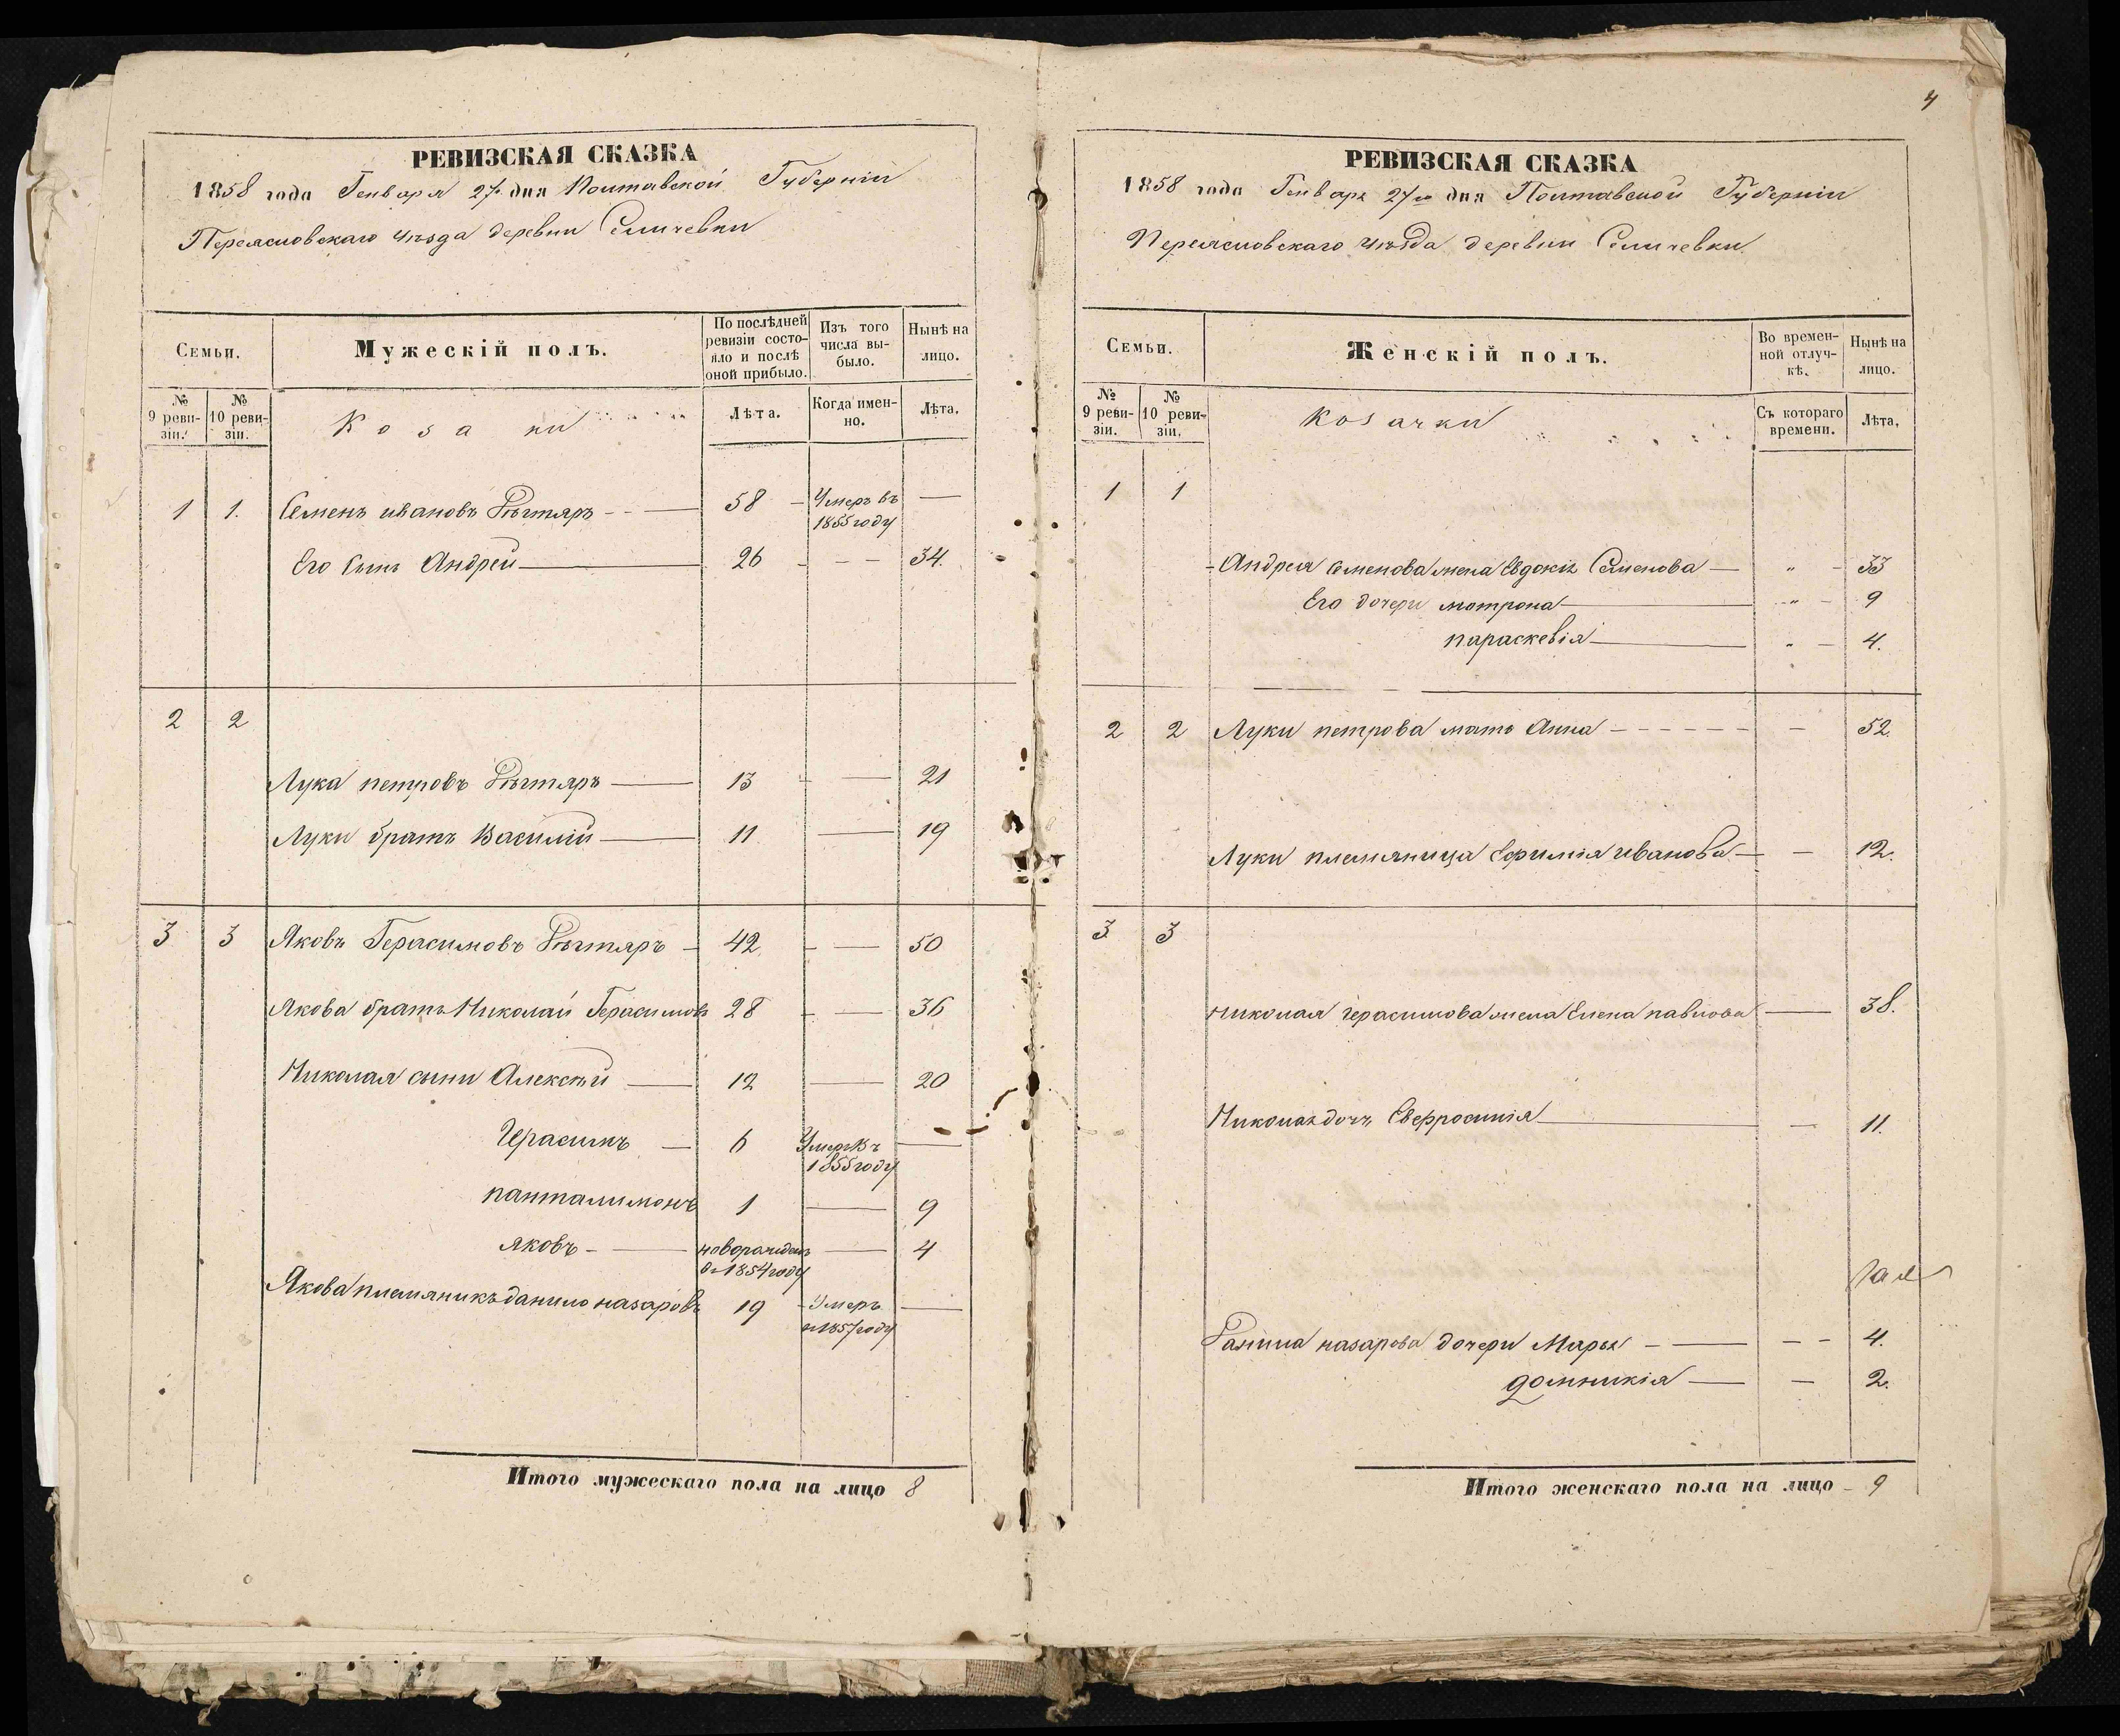 4
РЕВИЗСКАЯ СКАЗКА
1858 года Генваря 27го дня Полтавской Губерніи
Переясловскаго уѣзда деревни Селичевки
Семьи.
Мужескій полъ.
По послѣдней ревизіи состояло и послѣ оной прибыло.
Изъ того числа выбыло.
Нынѣ на лицо.
№ 9 ревизіи.
№ 10 ревизіи.
Козаки
Лѣта.
Когда именно.
Лѣта.
1 1. Семенъ ивановъ Дѣгтяръ 58 Умеръ въ 1855 году —
Его Сынъ Андрей 26 — — 34.
2 2
Лука петровъ Дѣгтяръ 13 — 21
Луки братъ Василій 11 — 19
3 3 Яковъ Герасимовъ Дѣгтяръ 42 — 50
Якова братъ Николай Герасимовъ 28 — 36
Николая сыни Алексѣй 12 — 20
Герасимъ 6 Умеръ въ 1855 году —
панталимонъ 1 — 9
яковъ новорожденъ въ 1854 году — 4
Якова племяникъ данило назаровъ 19 Умеръ въ 1857 году —
Итого мужескаго пола на лицо 8
РЕВИЗСКАЯ СКАЗКА
1858 года Генваря 27го дня Полтавской Губерніи
Переясловскаго уѣзда деревни Селичевки
Семьи.
Женскій полъ.
Во временной отлучкѣ.
Нынѣ на лицо.
№ 9 ревизіи.
№ 10 ревизіи.
Козачки
Съ котораго времени.
Лѣта.
1 1
Андрея Семенова жена Евдокія Семенова „ 33
Его дочери мотрона „ 9
параскевія „ 4.
2 2 Луки петрова мать Анна — 52.
Луки племяница Ефимія иванова — 12.
3 3
Николая герасимова жена Елена павлова — 38.
Николая дочь Евфросинія — 11.
Данила назарова дочери Марья — 4.
домникія — 2.
Итого женскаго пола на лицо 9